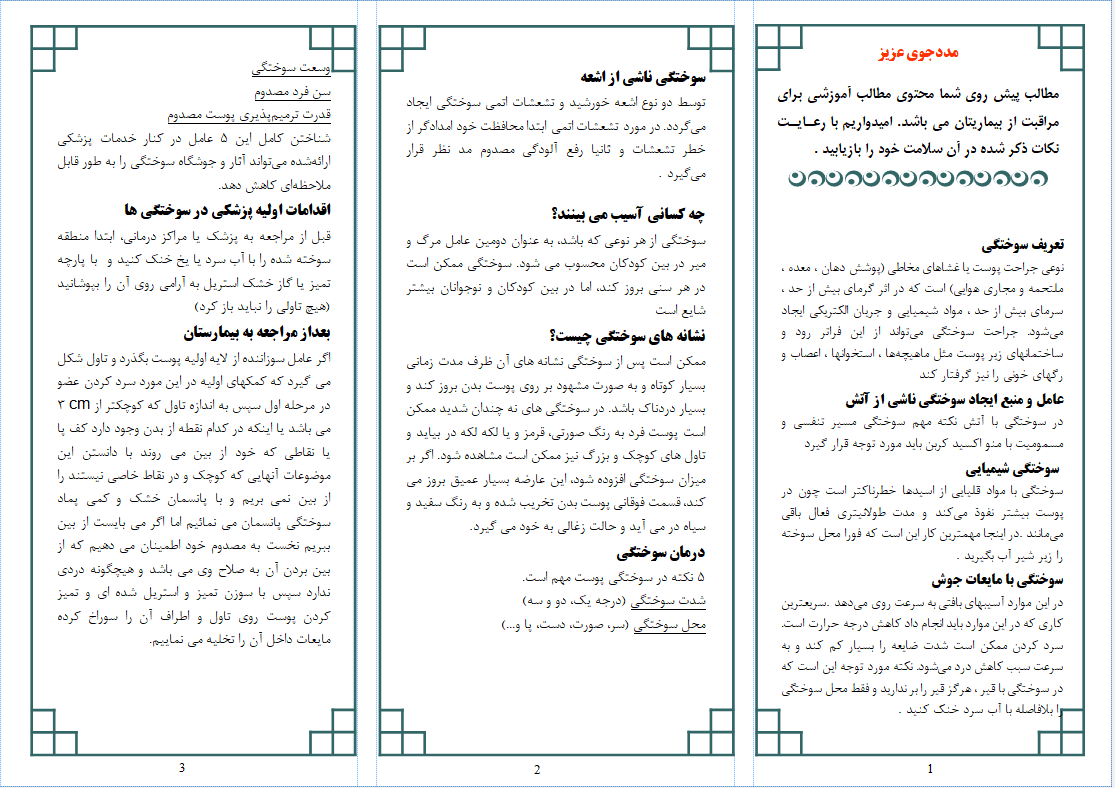 مددجوی عزیز
مطالب پیش روی شما محتوی مطالب آموزشی برای
مراقبت از بیماریتان می باشد. امیدواریم با رعـایـت
نکات ذکر شده در آن سلامت خود را بازیابید .
تعریف سوختگی
نوعی جراحت پوست یا غشاهای مخاطی (پوشش دهان ، معده ،
ملتحمه و مجاری هوایی) است که در اثر گرمای بیش از حد ،
سرمای بیش از حد ، مواد شیمیایی و جریان الکتریکی ایجاد
می‌شود. جراحت سوختگی می‌تواند از این فراتر رود و
ساختمانهای زیر پوست مثل ماهیچه‌ها ، استخوانها ، اعصاب و
رگهای خونی را نیز گرفتار کند
عامل و منبع ایجاد سوختگی ناشی از آتش
در سوختگی با آتش نکته مهم سوختگی مسیر تنفسی و
مسمومیت با منو اکسید کربن باید مورد توجه قرار گیرد
سوختگی شیمیایی
سوختگی با مواد قلیایی از اسیدها خطرناکتر است چون در
پوست بیشتر نفوذ می‌کند و مدت طولانیتری فعال باقی
می‌مانند .در اینجا مهمترین کار این است که فورا محل سوخته
را زیر شیر آب بگیرید .
سوختگی با مایعات جوش
در این موارد آسیبهای بافتی به سرعت روی می‌دهد .سریعترین
کاری که در این موارد باید انجام داد کاهش درجه حرارت است.
سرد کردن ممکن است شدت ضایعه را بسیار کم کند و به
سرعت سبب کاهش درد می‌شود. نکته مورد توجه این است که
در سوختگی با قیر ، هرگز قیر را بر ندارید و فقط محل سوختگی
را بلافاصله با آب سرد خنک کنید .
1
سوختگی ناشی از اشعه
توسط دو نوع اشعه خورشید و تشعشات اتمی سوختگی ایجاد
می‌گردد. در مورد تشعشات اتمی ابتدا محافظت خود امدادگر از
خطر تشعشات و ثانیا رفع آلودگی مصدوم مد نظر قرار
می‌گیرد .
چه کسانی آسیب می بینند؟
سوختگی از هر نوعی که باشد، به عنوان دومین عامل مرگ و
میر در بین کودکان محسوب می شود. سوختگی ممکن است
در هر سنی بروز کند، اما در بین کودکان و نوجوانان بیشتر
شایع است
نشانه های سوختگی چیست؟
ممکن است پس از سوختگی نشانه های آن ظرف مدت زمانی
بسیار کوتاه و به صورت مشهود بر روی پوست بدن بروز کند و
بسیار دردناک باشد. در سوختگی های نه چندان شدید ممکن
است پوست فرد به رنگ صورتی، قرمز و یا لکه لکه در بیاید و
تاول های کوچک و بزرگ نیز ممکن است مشاهده شود. اگر بر
میزان سوختگی افزوده شود، این عارضه بسیار عمیق بروز می
کند، قسمت فوقانی پوست بدن تخریب شده و به رنگ سفید و
سیاه در می آید و حالت زغالی به خود می گیرد.
درمان سوختگی
۵ نکته در سوختگی پوست مهم است.
شدت سوختگی (درجه یک، دو و سه)
محل سوختگی (سر، صورت، دست، پا و...)
2
وسعت سوختگی
سن فرد مصدوم
قدرت ترمیم‌پذیری پوست مصدوم
شناختن کامل این ۵ عامل در کنار خدمات پزشکی
ارائه‌شده می‌تواند آثار و جوشگاه سوختگی را به طور قابل
ملاحظه‌ای کاهش دهد.
اقدامات اولیه پزشکی در سوختگی ها
قبل از مراجعه به پزشک یا مراکز درمانی، ابتدا منطقه
سوخته شده را با آب سرد یا یخ خنک کنید و با پارچه
تمیز یا گاز خشک استریل به آرامی روی آن را بپوشانید
(هیچ تاولی را نباید باز کرد)
بعداز مراجعه به بیمارستان
اگر عامل سوزاننده از لایه اولیه پوست بگذرد و تاول شکل
می گیرد که کمکهای اولیه در این مورد سرد کردن عضو
در مرحله اول سپس به اندازه تاول که کوچکتر از ۳ cm
می باشد یا اینکه در کدام نقطه از بدن وجود دارد کف پا
یا نقاطی که خود از بین می روند با دانستن این
موضوعات آنهایی که کوچک و در نقاط خاصی نیستند را
از بین نمی بریم و با پانسمان خشک و کمی پماد
سوختگی پانسمان می نمائیم اما اگر می بایست از بین
ببریم نخست به مصدوم خود اطمینان می دهیم که از
بین بردن آن به صلاح وی می باشد و هیچگونه دردی
ندارد سپس با سوزن تمیز و استریل شده ای و تمیز
کردن پوست روی تاول و اطراف آن را سوراخ کرده
مایعات داخل آن را تخلیه می نماییم.
3